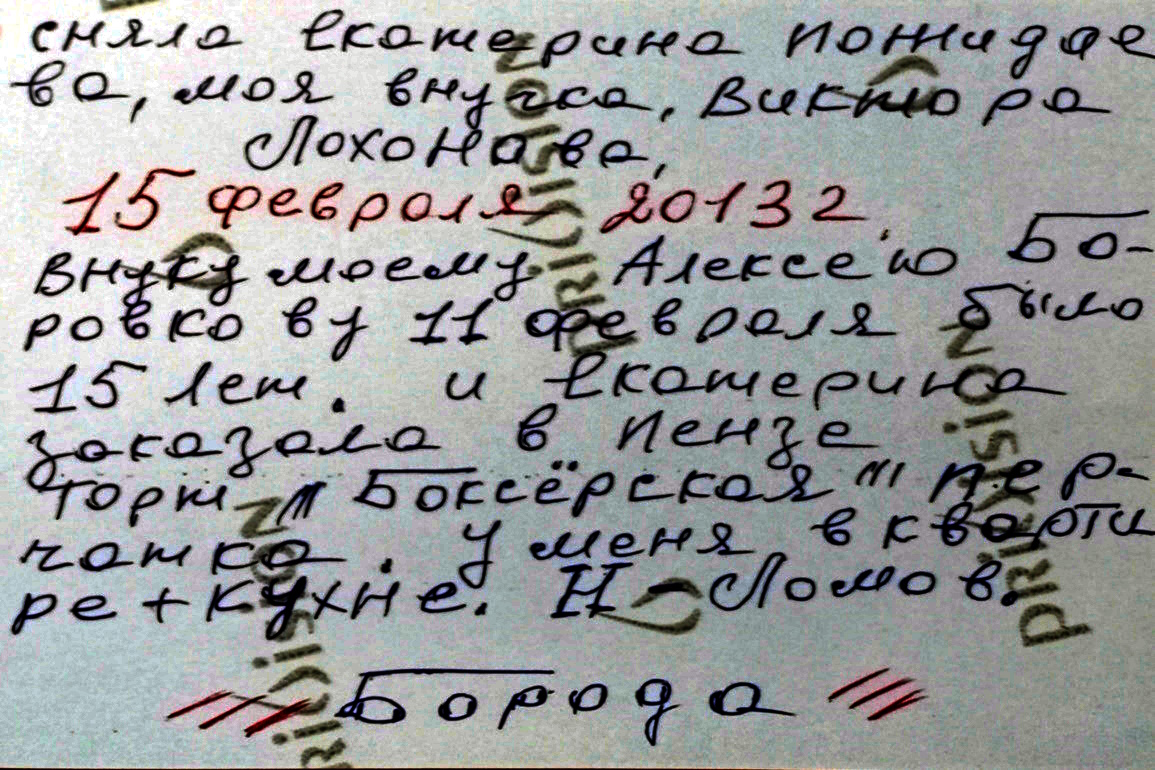 сняла Екатерина Пожидае
ва, моя внучка, Виктора
Лохонова,
15 февраля 2013г.
внуку моему Алексею Бо-
ровко ву 11 февраля было
15 лет. и Екатерина
заказала в Пензе
торт "Боксёрская" пер-
чатка. у меня в кварти
ре + кухне. Н-Ломов.
/// Борода ///
PRI(y)SION
PRI(y)SION
PRI(y)SION